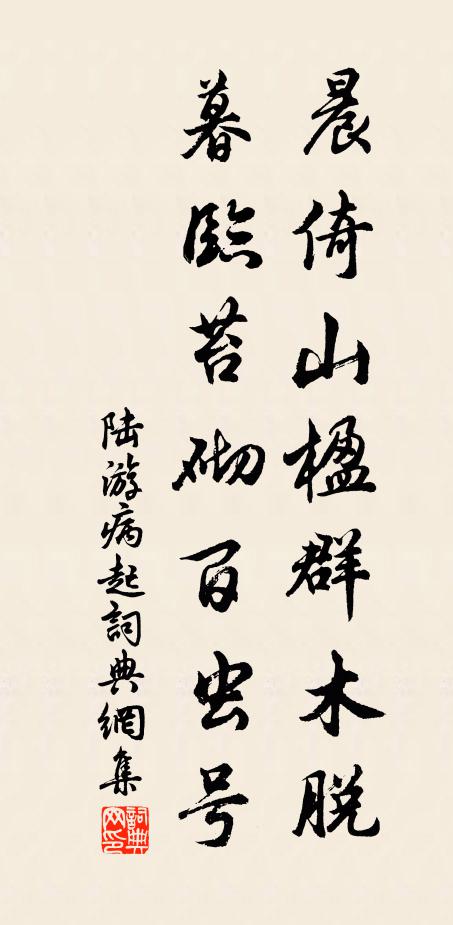 晨倚山楹群木脱
暮臨苔砌百虫号
陆游病起詞典網集
詞典网印